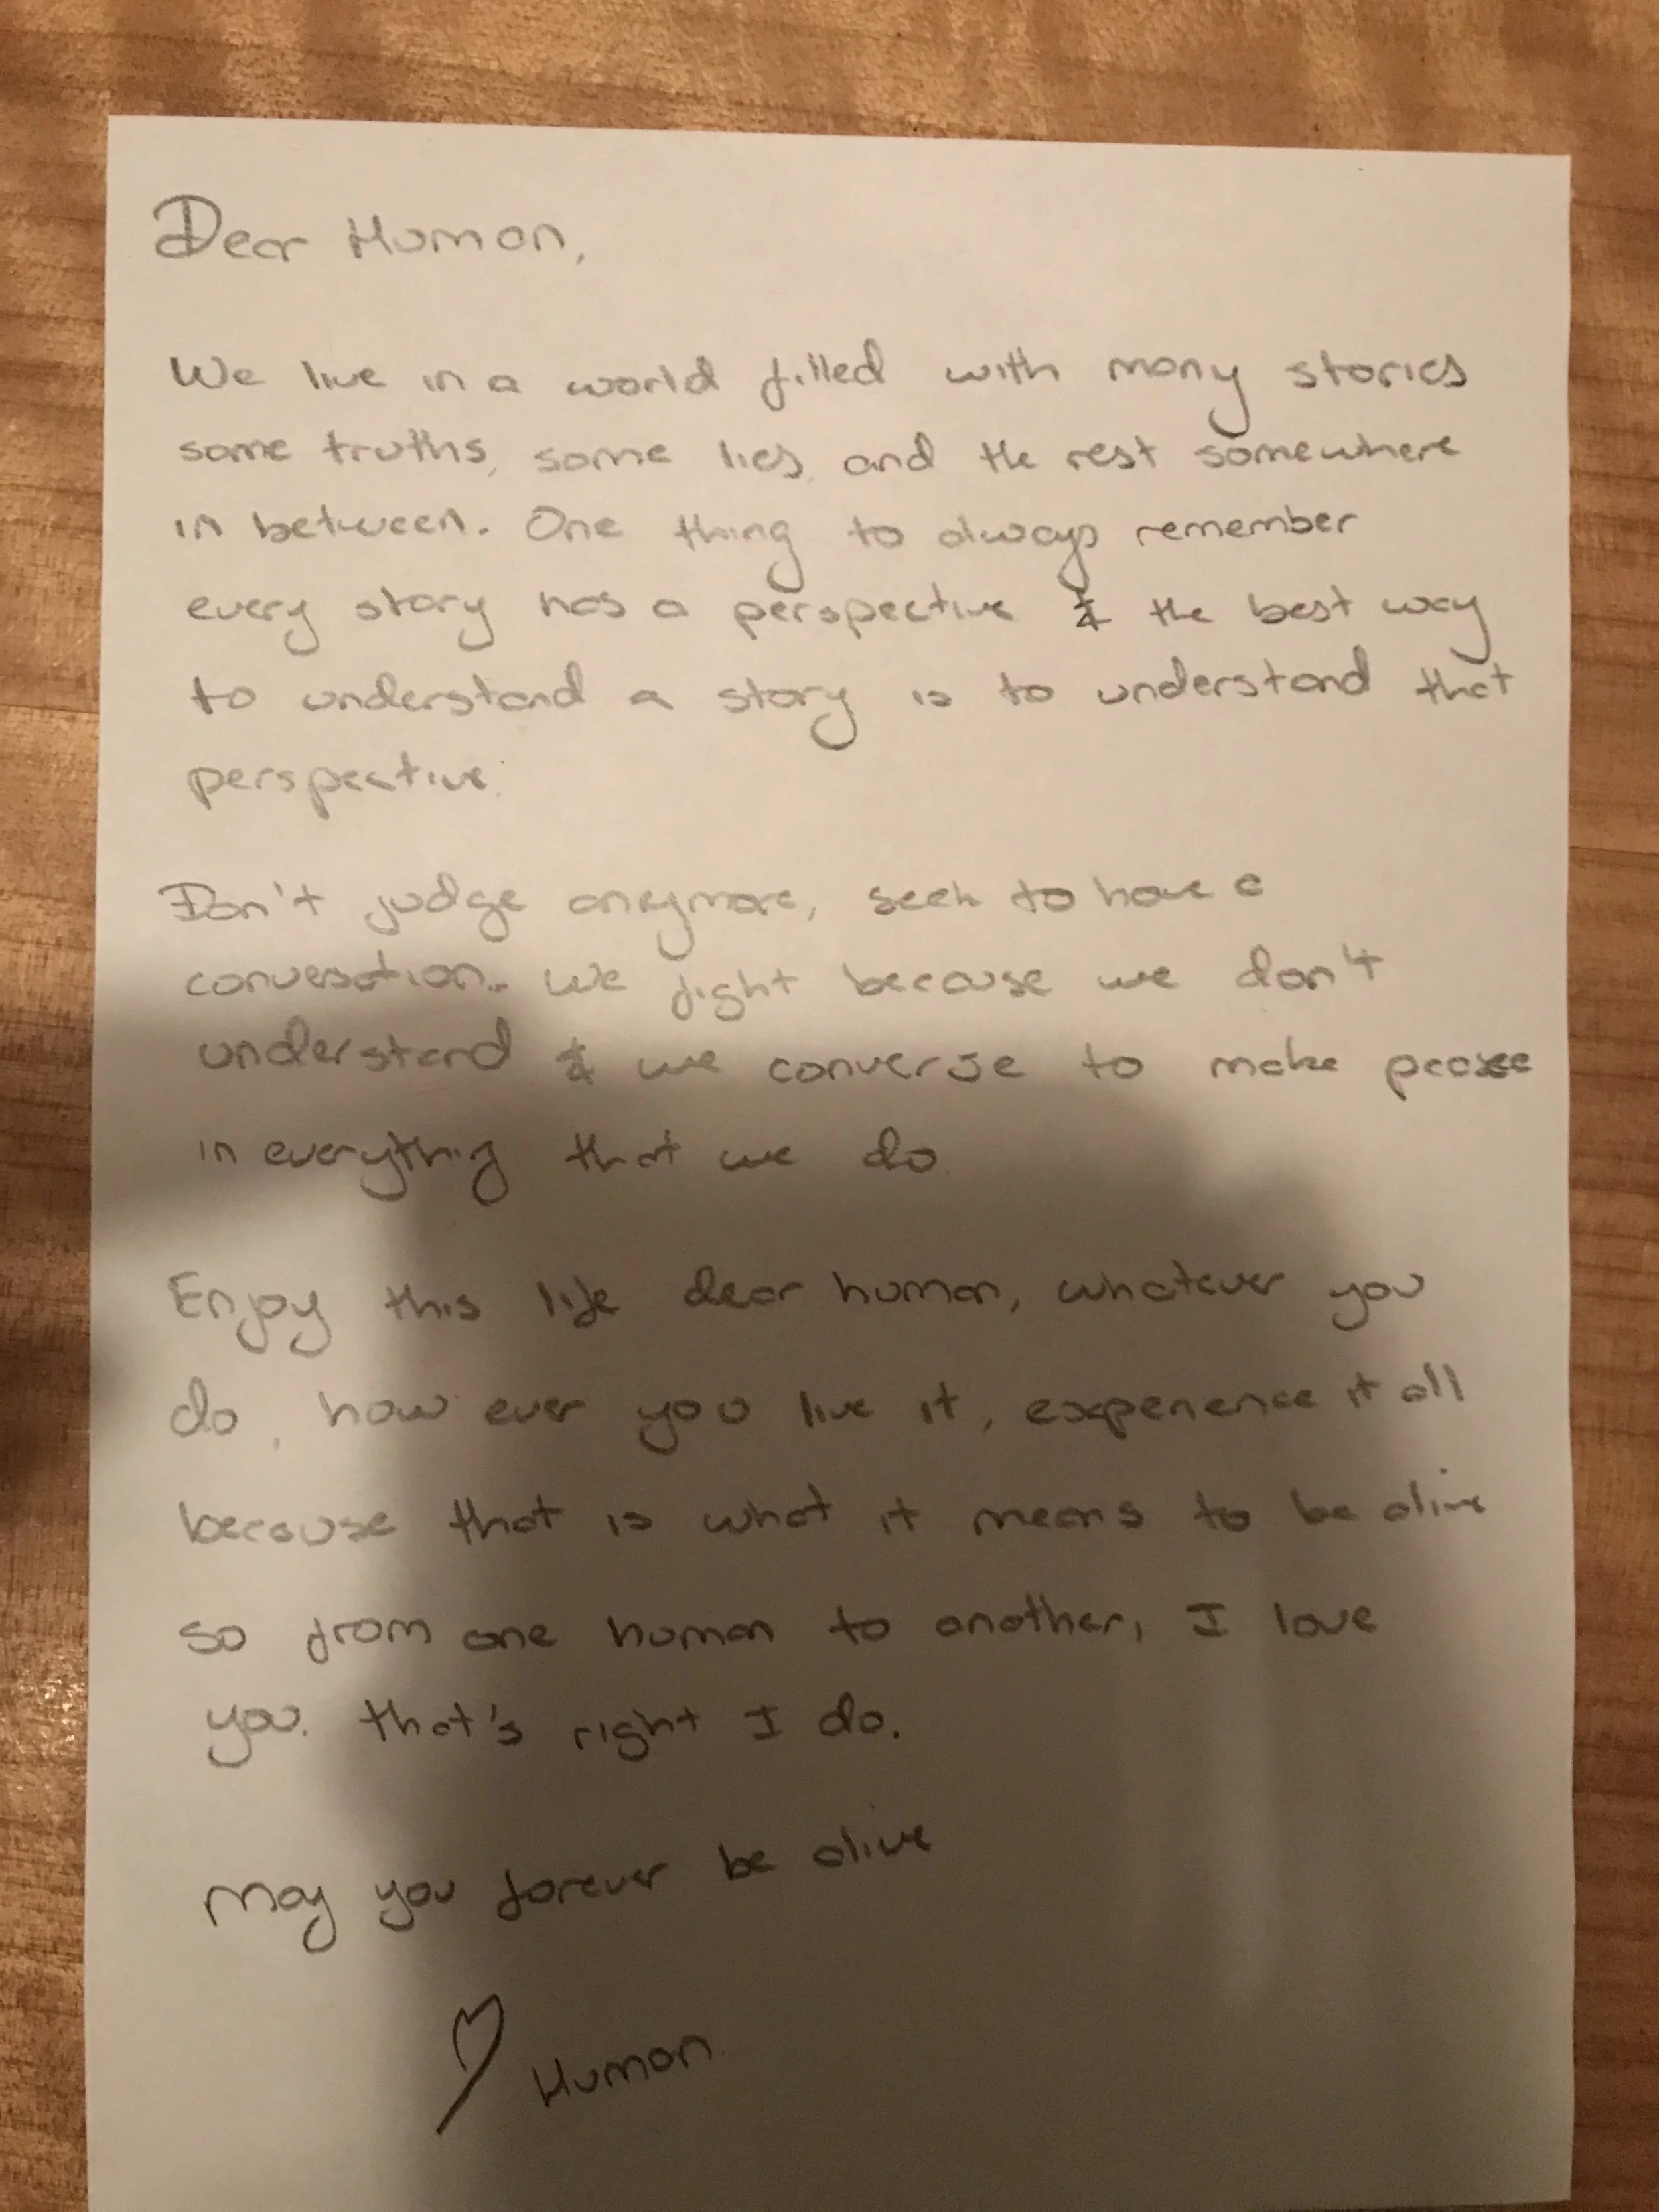 Dear Human,
We live in a world filled with many stories
some truths, some lies, and the rest somewhere
in between. One thing to always remember
every story has a perspective & the best way
to understand a story is to understand that
perspective.
Don't judge anymore, seek to have a
conversation. We fight because we don't
understand & we converse to make peace
in everything that we do.
Enjoy this life dear human, whatever you
do, how ever you live it, experience it all
because that is what it means to be alive
so from one human to another, I love
you. that's right I do.
May you forever be alive
♡ Human